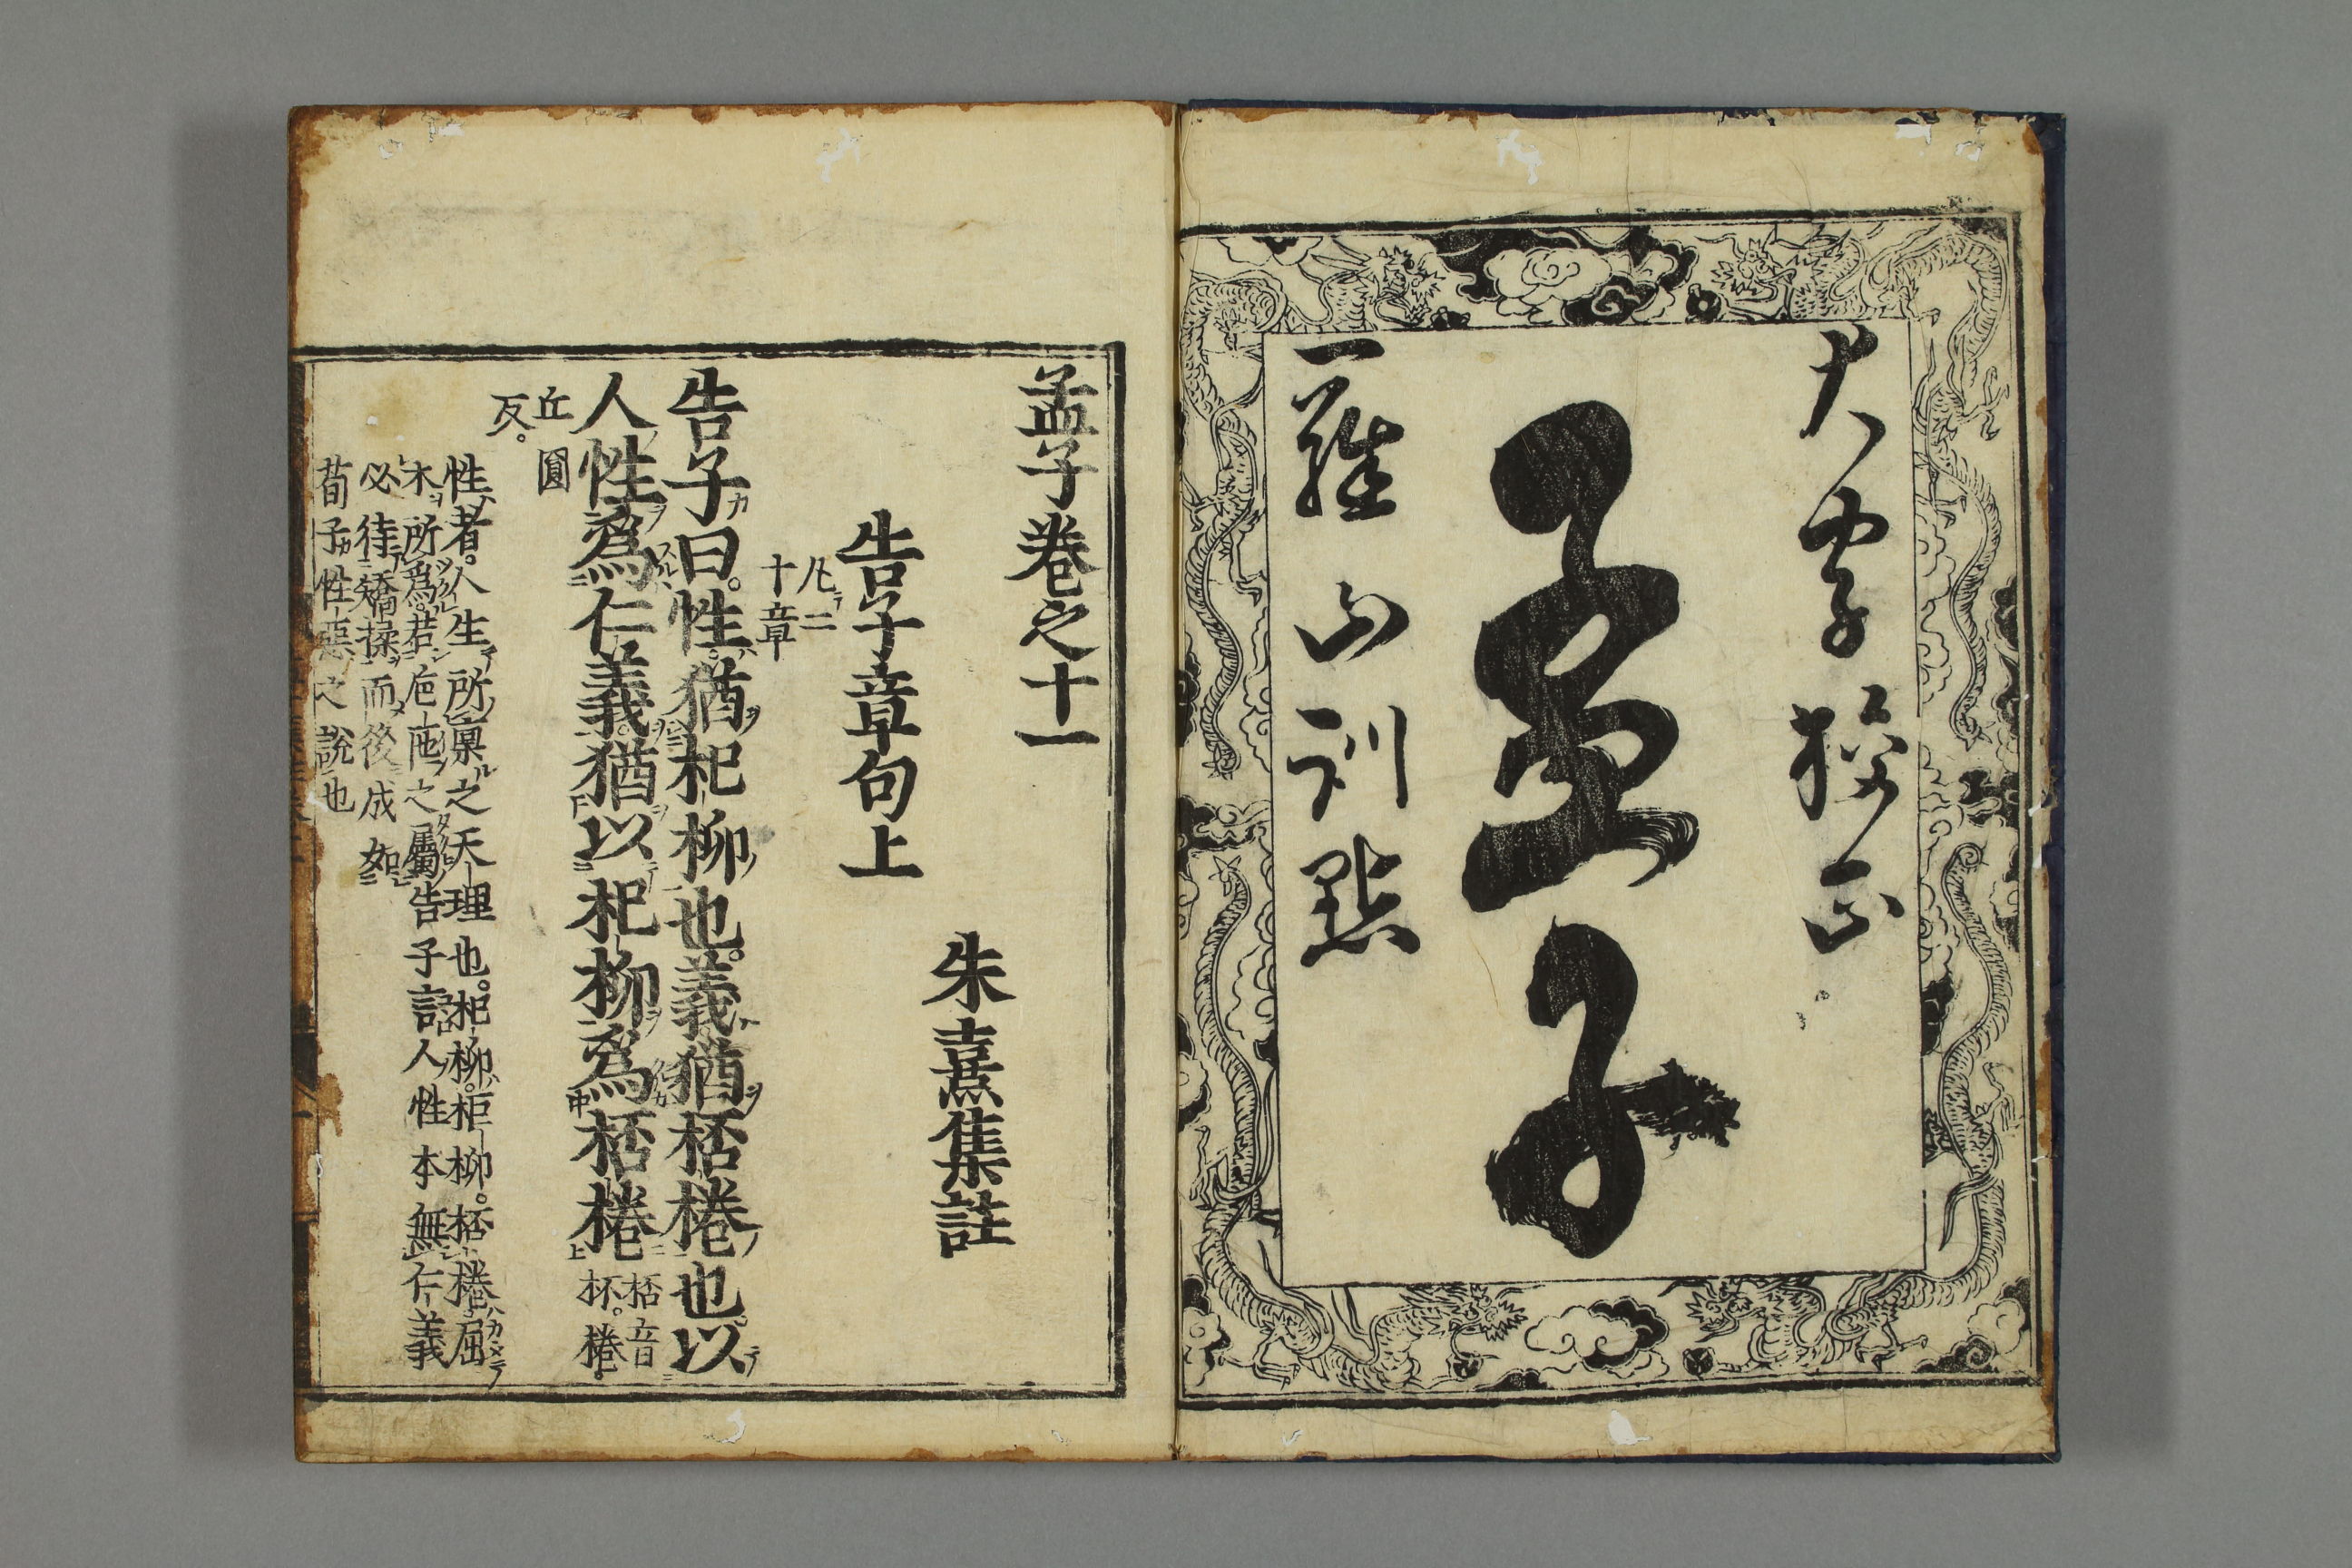 大字挍正
孟子
羅山訓點
孟子卷之十一
朱熹集註
告子章句上
凡二
十章
告子曰。性猶杞柳也。義猶桮棬也。以
人性爲仁義。猶以杞柳爲桮棬
桮音
杯。棬。
丘圓
反。
性者。人生所稟之天理也。杞柳。柜柳。桮棬屈
木所爲。若巵匜之屬告子言人性本無仁義
必待矯揉而後成如
荀子性惡之說也